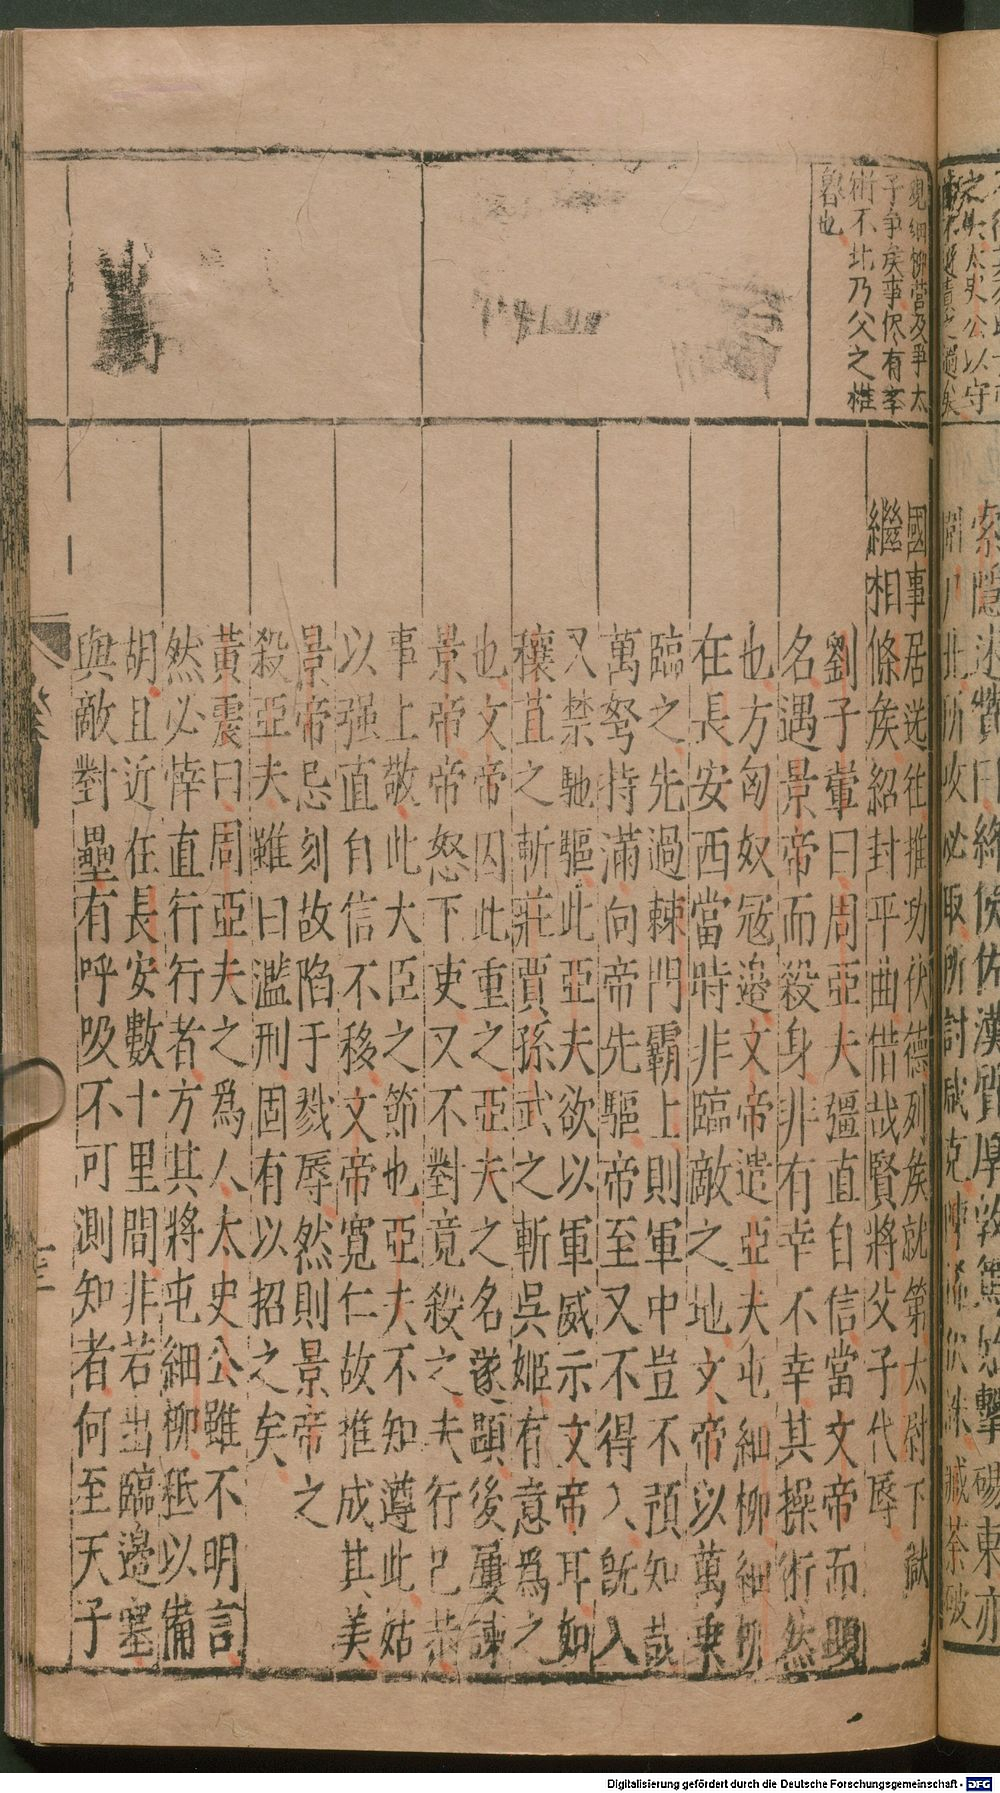 觀細柳營及爭太
子爭矣事保有宰
術不北乃父之椎
魯也
國事居送往推功伏德列矦就第太尉下獄
繼相條矦紹封平曲惜哉賢將父子代辱
劉子翬曰周亞夫彊直自信當文帝而顯
名遇景帝而殺身非有幸不幸其操術然
也方匈奴冦邉文帝遣亞夫屯細柳細柳
在長安西當時非臨敵之地文帝以萬乗
臨之先過棘門霸上則軍中豈不預知哉
萬弩持滿向帝先驅帝至又不得入旣入
又禁馳驅此亞夫欲以軍威示文帝耳如
穰苴之斬莊賈孫武之斬吳姬有意爲之
也文帝因此重之亞夫之名遂顯後屢諫
景帝帝怒下吏又不對竟殺之夫行己恭
事上敬此大臣之節也亞夫不知遵此姑
以强直自信不移文帝寛仁故推成其美
景帝忌刻故陷于戮辱然則景帝之
殺亞夫雖曰濫刑固有以招之矣
黃震曰周亞夫之爲人太史公雖不明言
然必悻直行行者方其將屯細柳秪以備
胡且近在長安數十里間非若出臨邉塞
與敵對壘有呼吸不可測知者何至天子
Digitalisierung gefördert durch die Deutsche Forschungsgemeinschaft - DFG